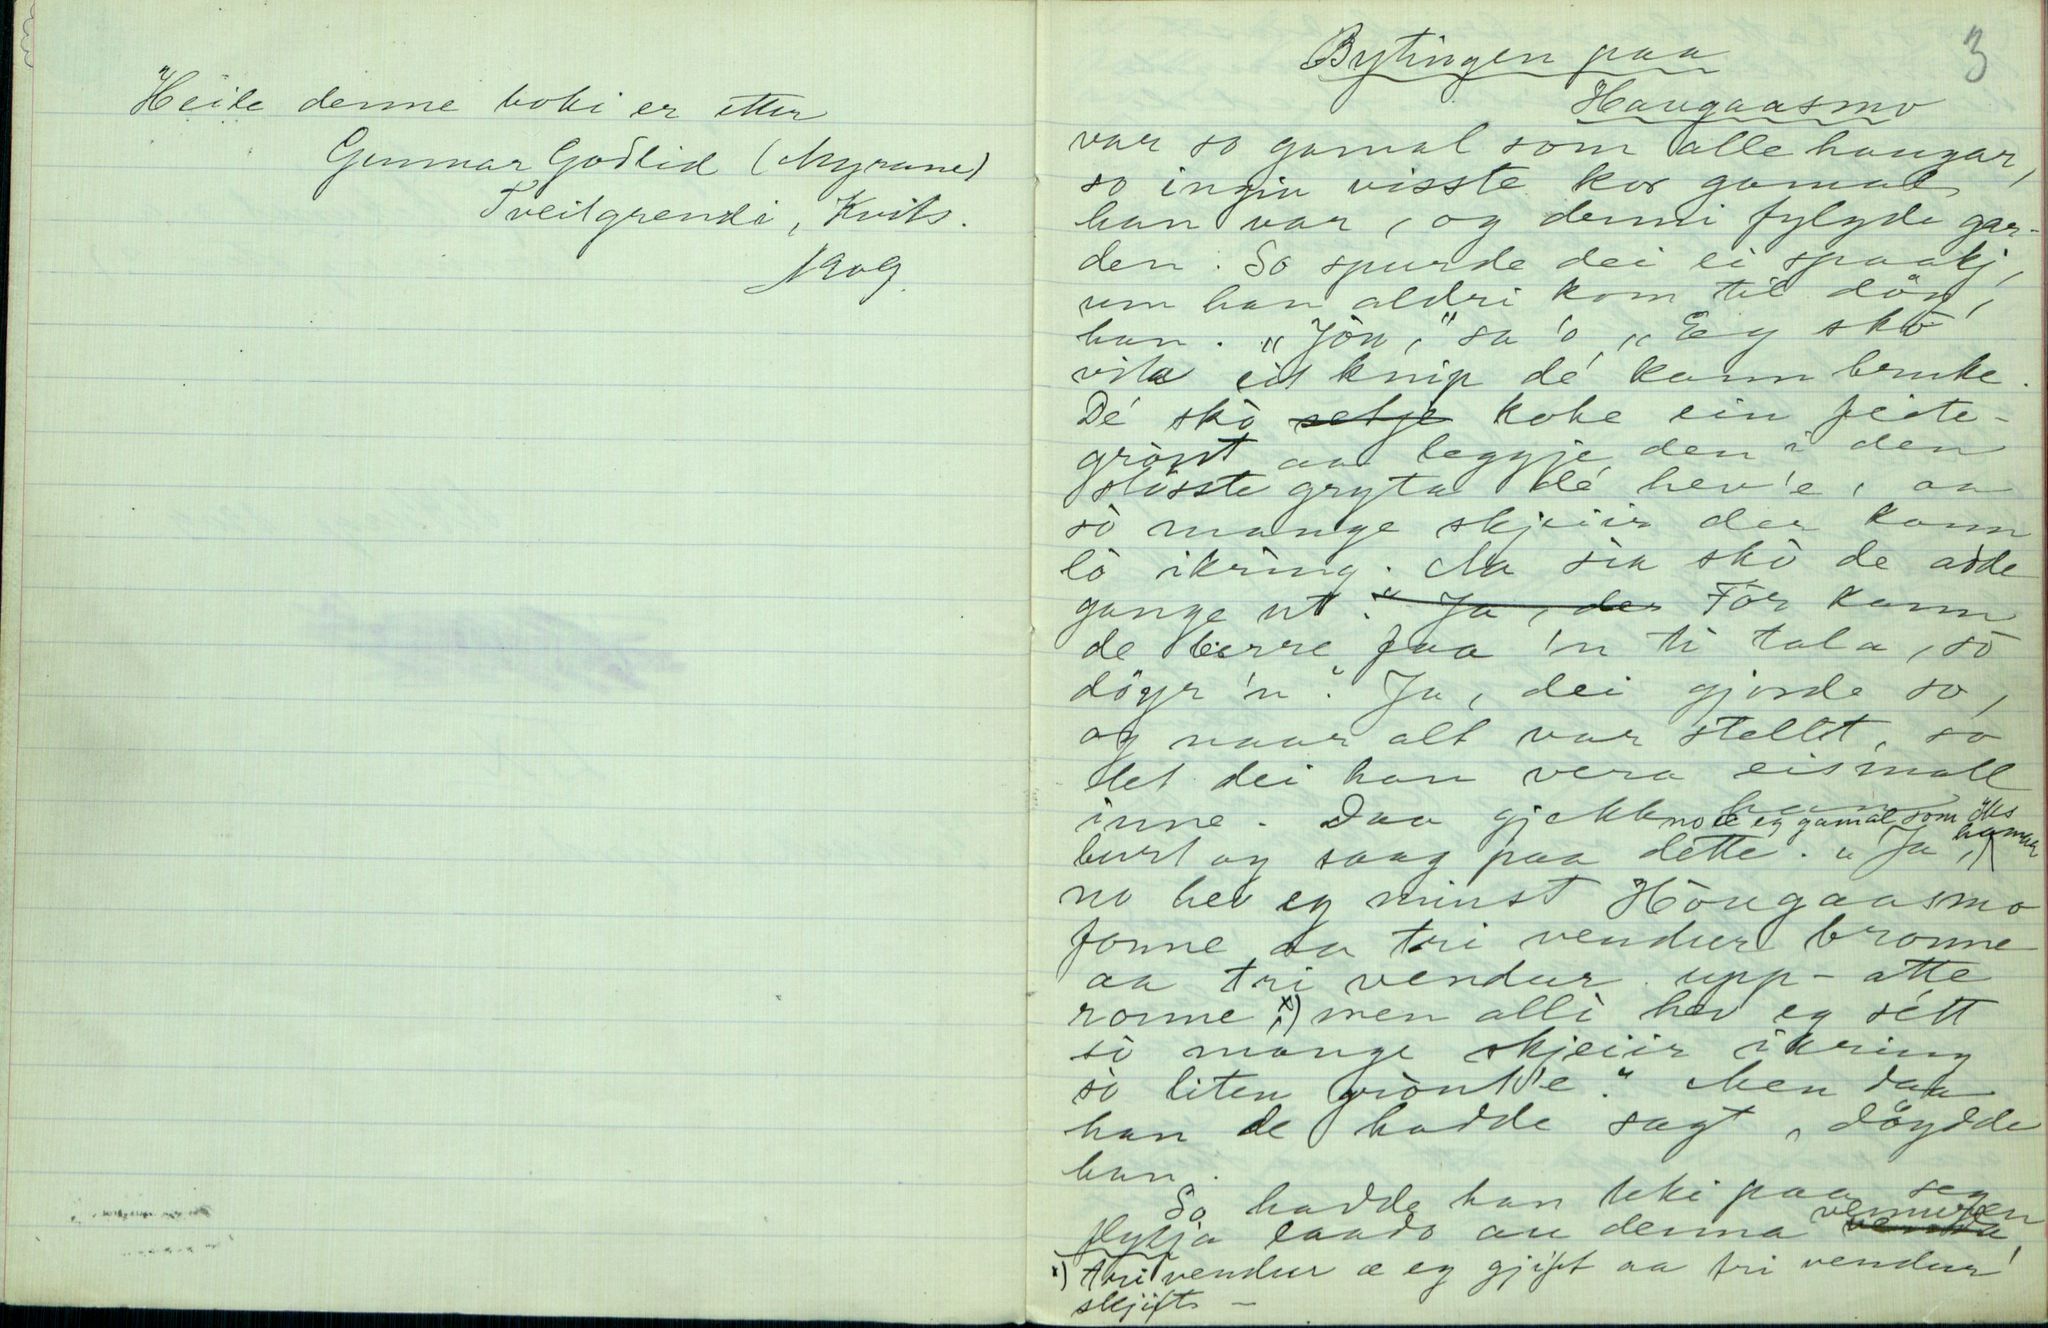 Heile denne boki er etter
Gunnar Godlid (Myrane)
Tveitgrendi, Kvits.
1909.
3
Bytingen paa
Haugaasmo
var so gamal som alle haugar,
so ingin visste kor gamal
han var, og denni fylgde gar-
den. So spurde dei ei spaakj,
um han aldri kom til döy,
han. "Jòu," sa 'o, "Eg skò
vita eit knip dé kann bruke.
Dé skò setje koke ein feite-
gròut aa leggje den i den
stösste gryta dé hev'e, aa
sò mange skjeiir der kann
lò ikring. Aa sia skò de adde
gange ut." Ja, der For kann
de berre faa 'n ti tala, sò
döyr 'n." Ja, dei gjorde so,
og naar alt var stellt, so
let dei han vera eismall
inne. Daa gjekk han
no æ eg gamal som ikks hamar
burt og saag paa dette. "Ja,
no hev eg minst Hòugaasmo
fonne aa tri vendur bronne
aa tri vendur upp-atte
ronne x) men alli hev eg sétt
sò mange skjeiir ikring
sò liten gròut'e." Men daa
han de hadde sagt, döydde
han.
So hadde han teki paa seg
flytja laads au denna vemursen
venda,
x) tri vendur æ eg gjift aa tri vendur
skjift –